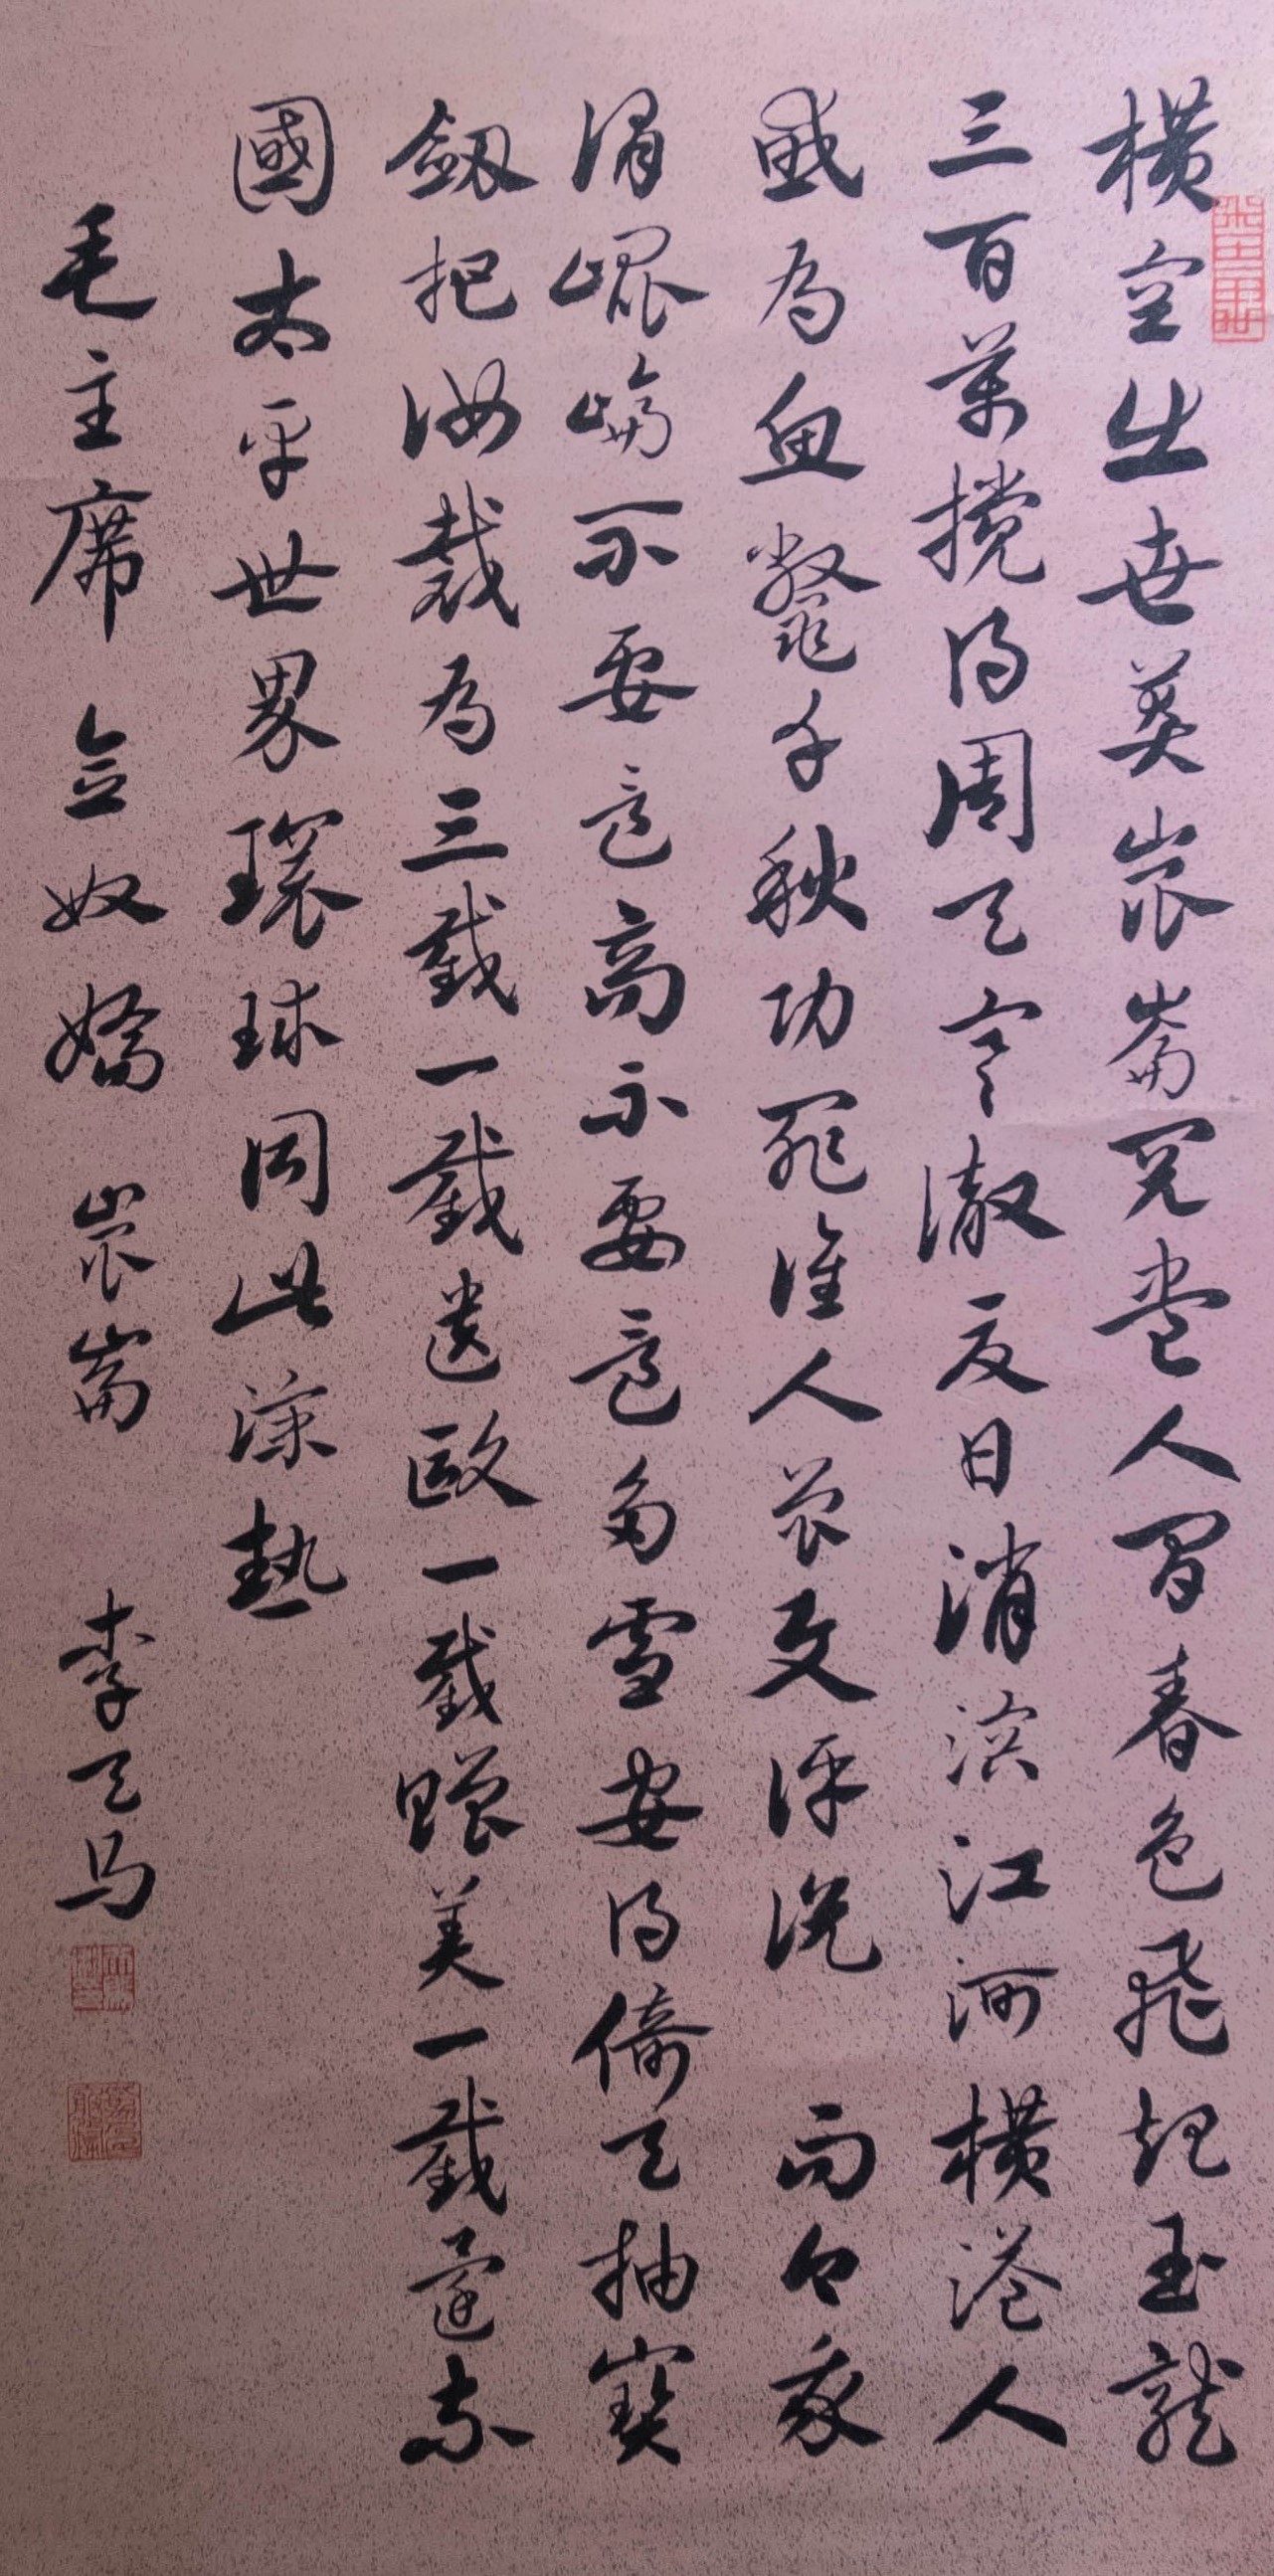 橫空出世莽崑崙閱盡人間春色飛起玉龍
三百萬攪得周天寒澈夏日消溶江河橫溢人
或為魚鱉千秋功罪誰人曾文評說 而今我
謂崐崘不要這高不要這多雪安得倚天抽寶
劔把汝裁為三截一截遺歐一截贈美一截還東
國太平世界環球同此涼熱
毛主席 念奴嬌 崑崙 李天馬